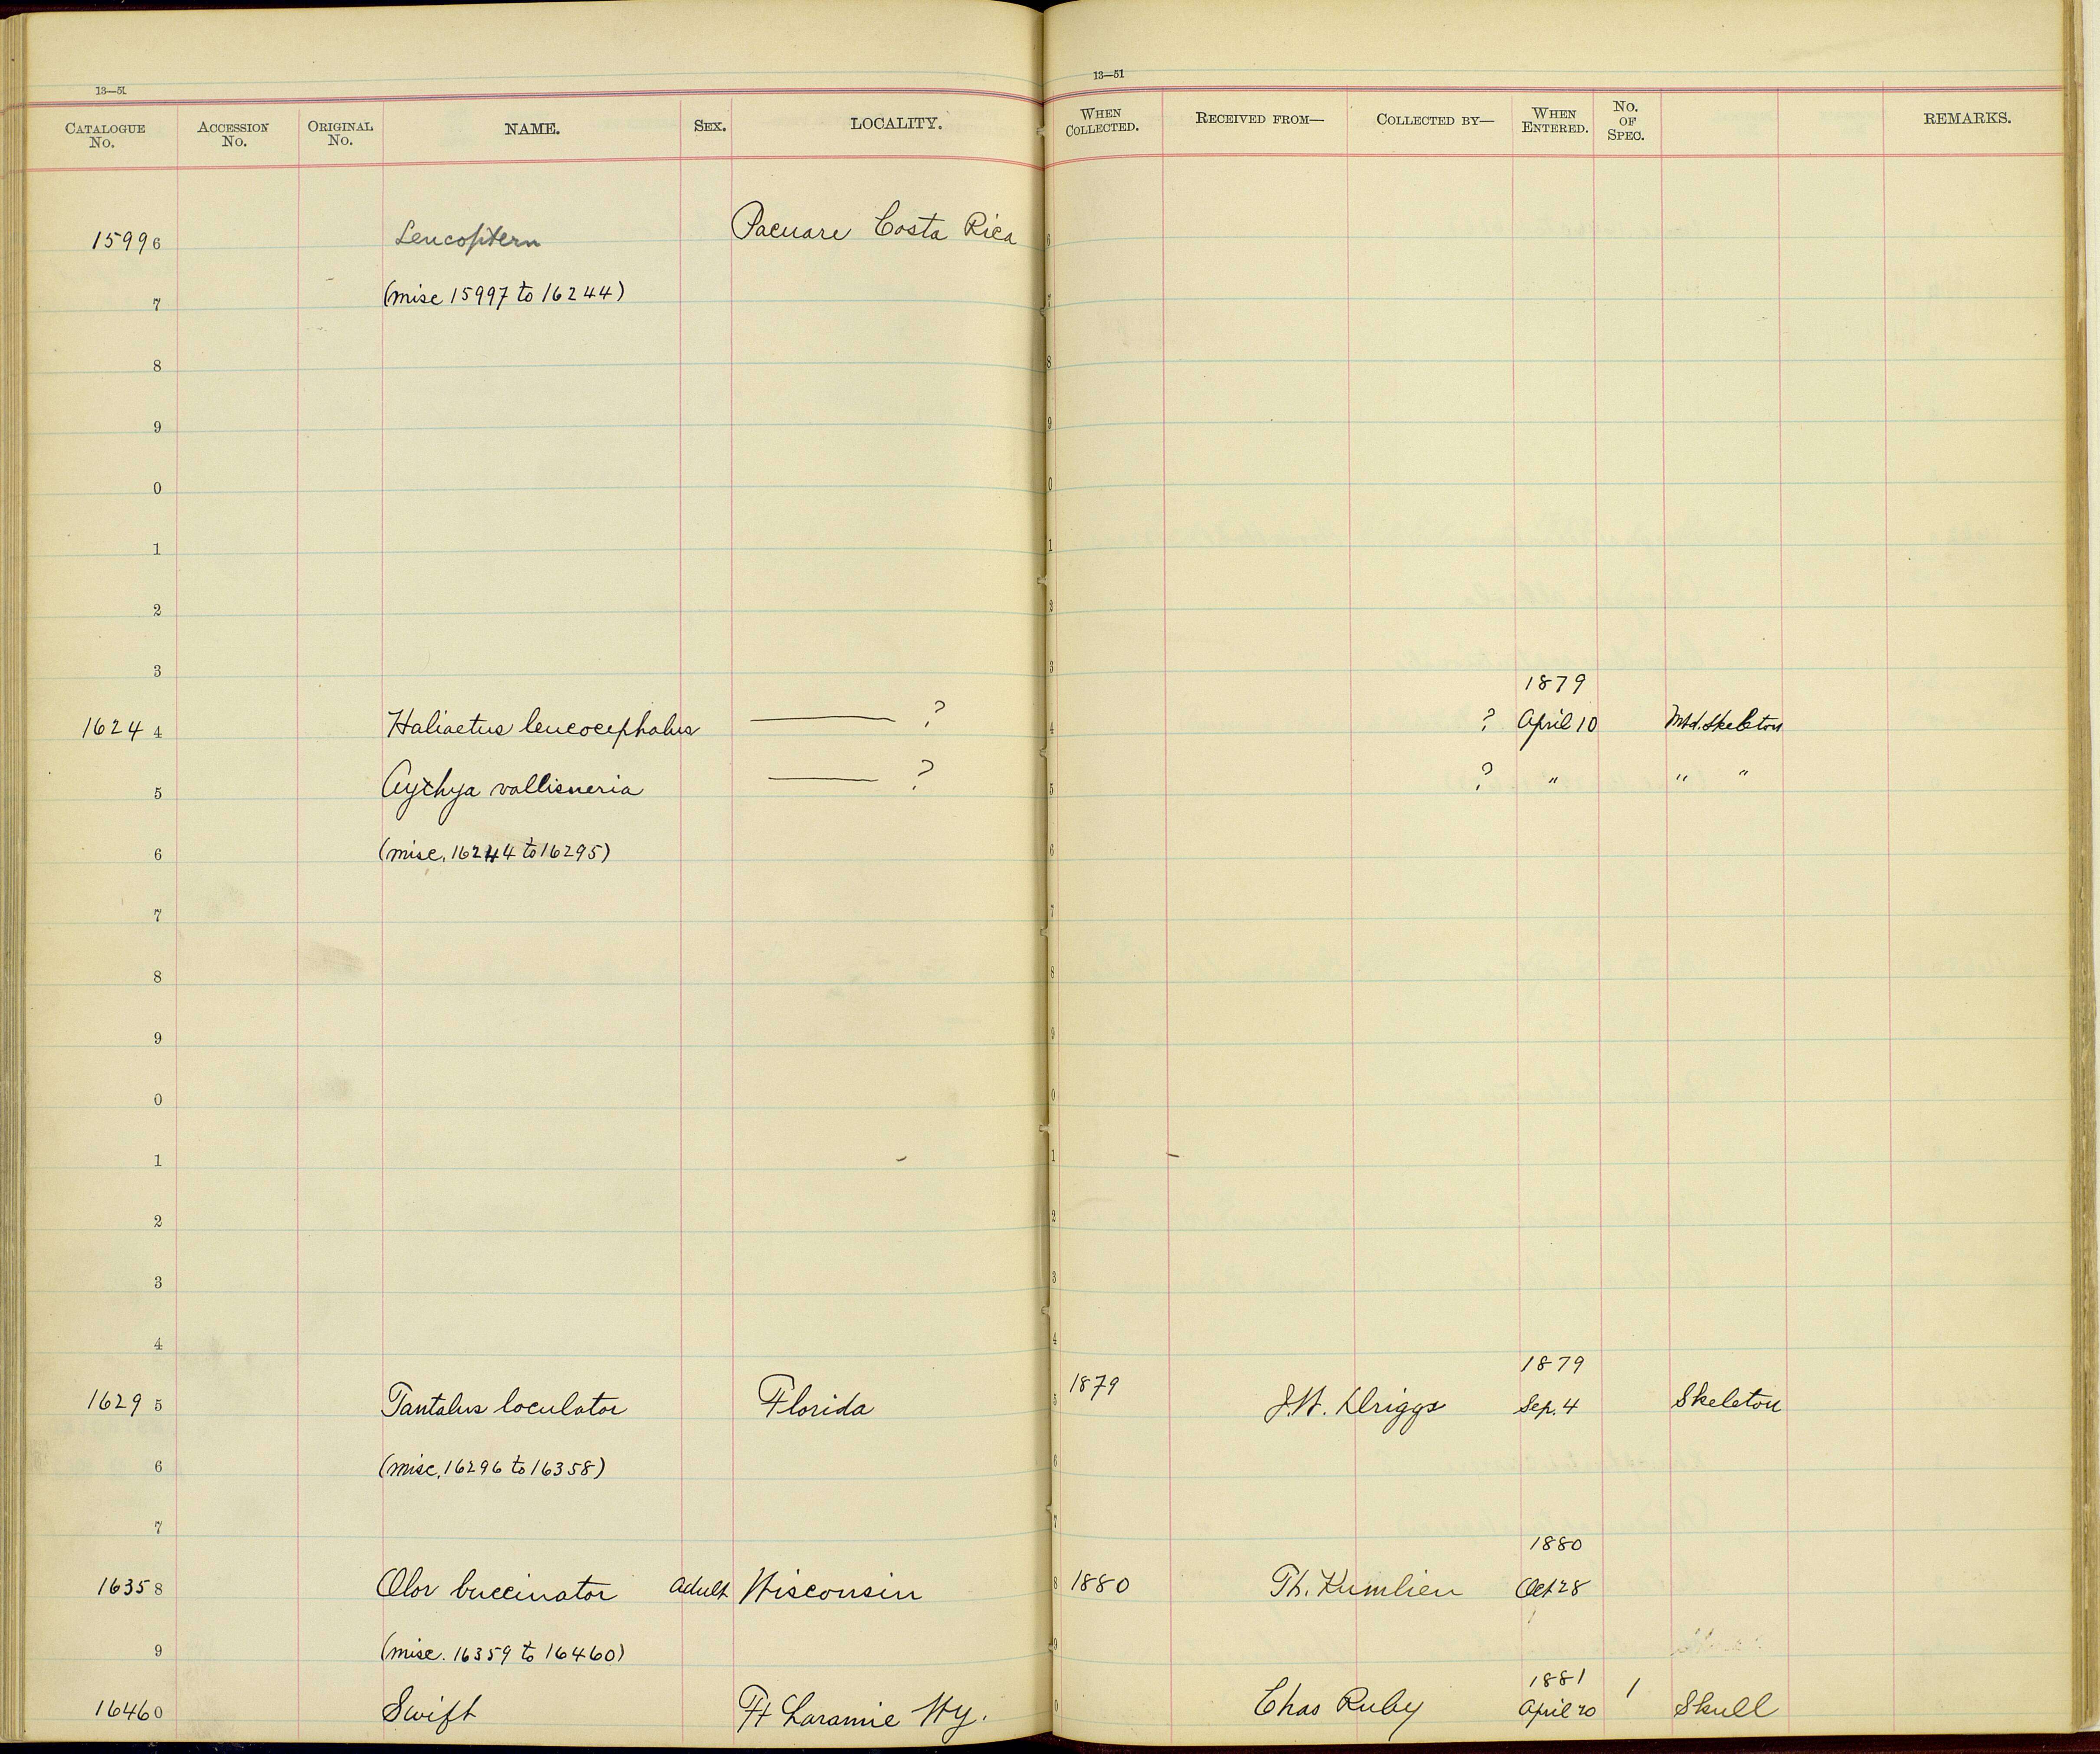 13—51
13—51
CATALOGUE No. ACCESSION No. ORIGINAL No. NAME. SEX. LOCALITY. WHEN COLLECTED. RECEIVED FROM— COLLECTED BY— WHEN ENTERED. No. OF SPEC. REMARKS.
15996 Pacuare Costa Rica 6
7 (misc 15997 to 16244) 7
8 8
9 9
0 0
1 1
2 2
3 3
1879
16244 Haliaetus leucocephalus ——— ? 4 ? April 10 Mtd. Skeleton
5 Aythya vallisneria ——— ? 5 ? " " "
6 (misc. 16244 to 16295) 6
7 7
8 8
9 9
0 0
1 1
2 2
3 3
4 4
1879
16295 Tantalus loculator Florida 5 1879 J.W. Driggs Sep. 4 Skeleton
6 (misc. 16296 to 16358) 6
7 7
1880
16358 Olor buccinator adult Wisconsin 8 1880 Th. Kumlien Oct 28
9 (misc. 16359 to 16460) 9
1881
16460 Swift Ft Laramie Wy. 0 Chas Ruby April 20 1 Skull